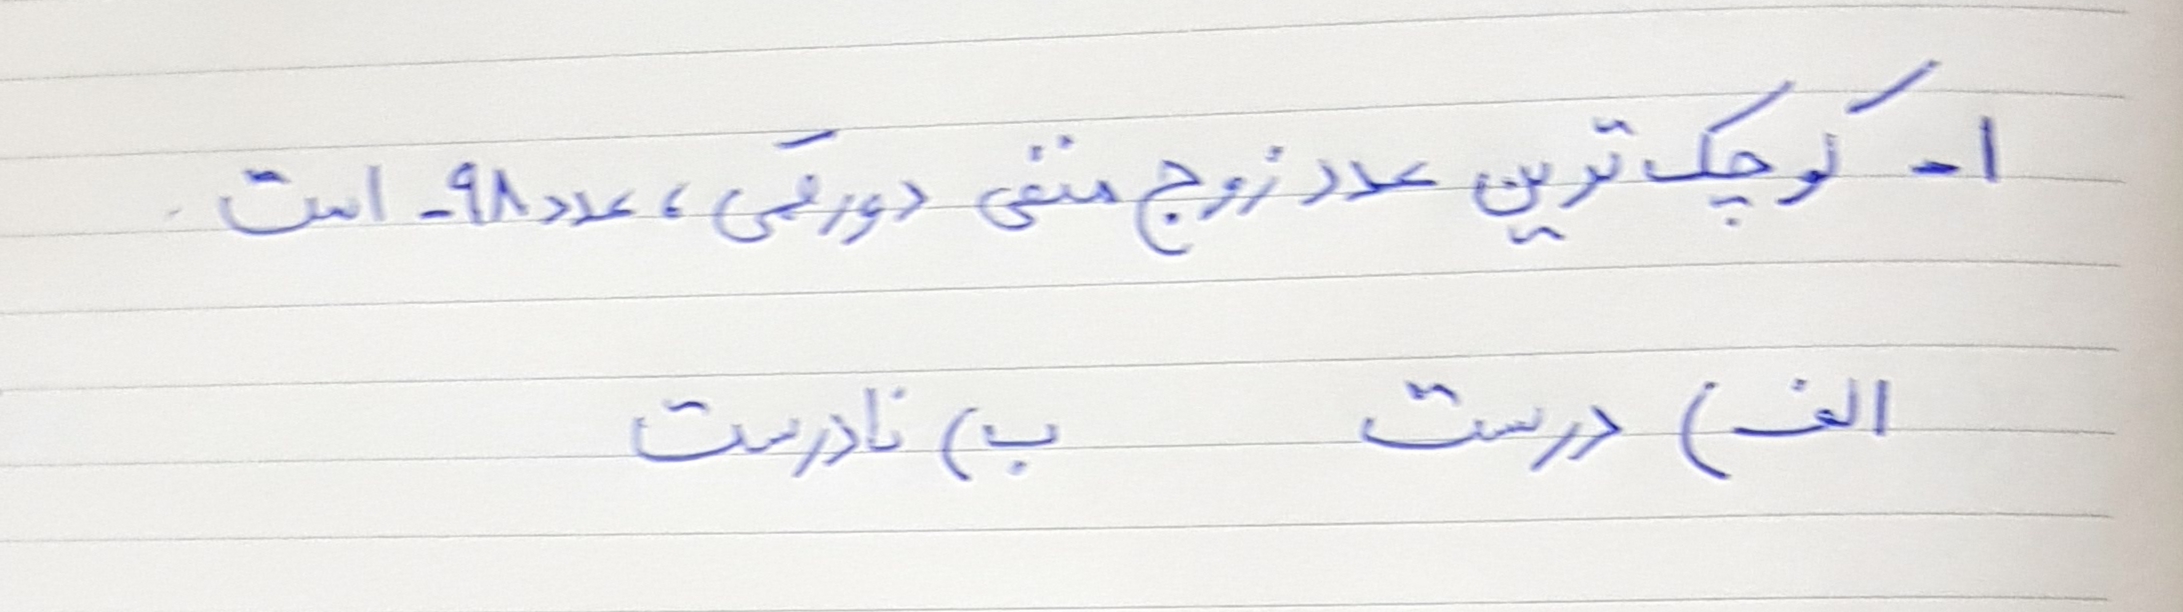 ۱- کوچک ترین عدد زوج منفی دورقمی، عدد ۹۸- است.
الف) درست ب) نادرست